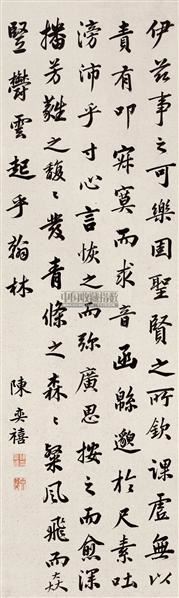 伊茲事之可樂固聖賢之所欽課虛無以
責有叩寂寞而求音函緜邈於尺素吐
滂沛乎寸心言恢之而弥廣思按之而愈深
播芳蕤之馥〻發青條之森〻粲風飛而焱
竪鬱雲起乎翰林
陳奕禧